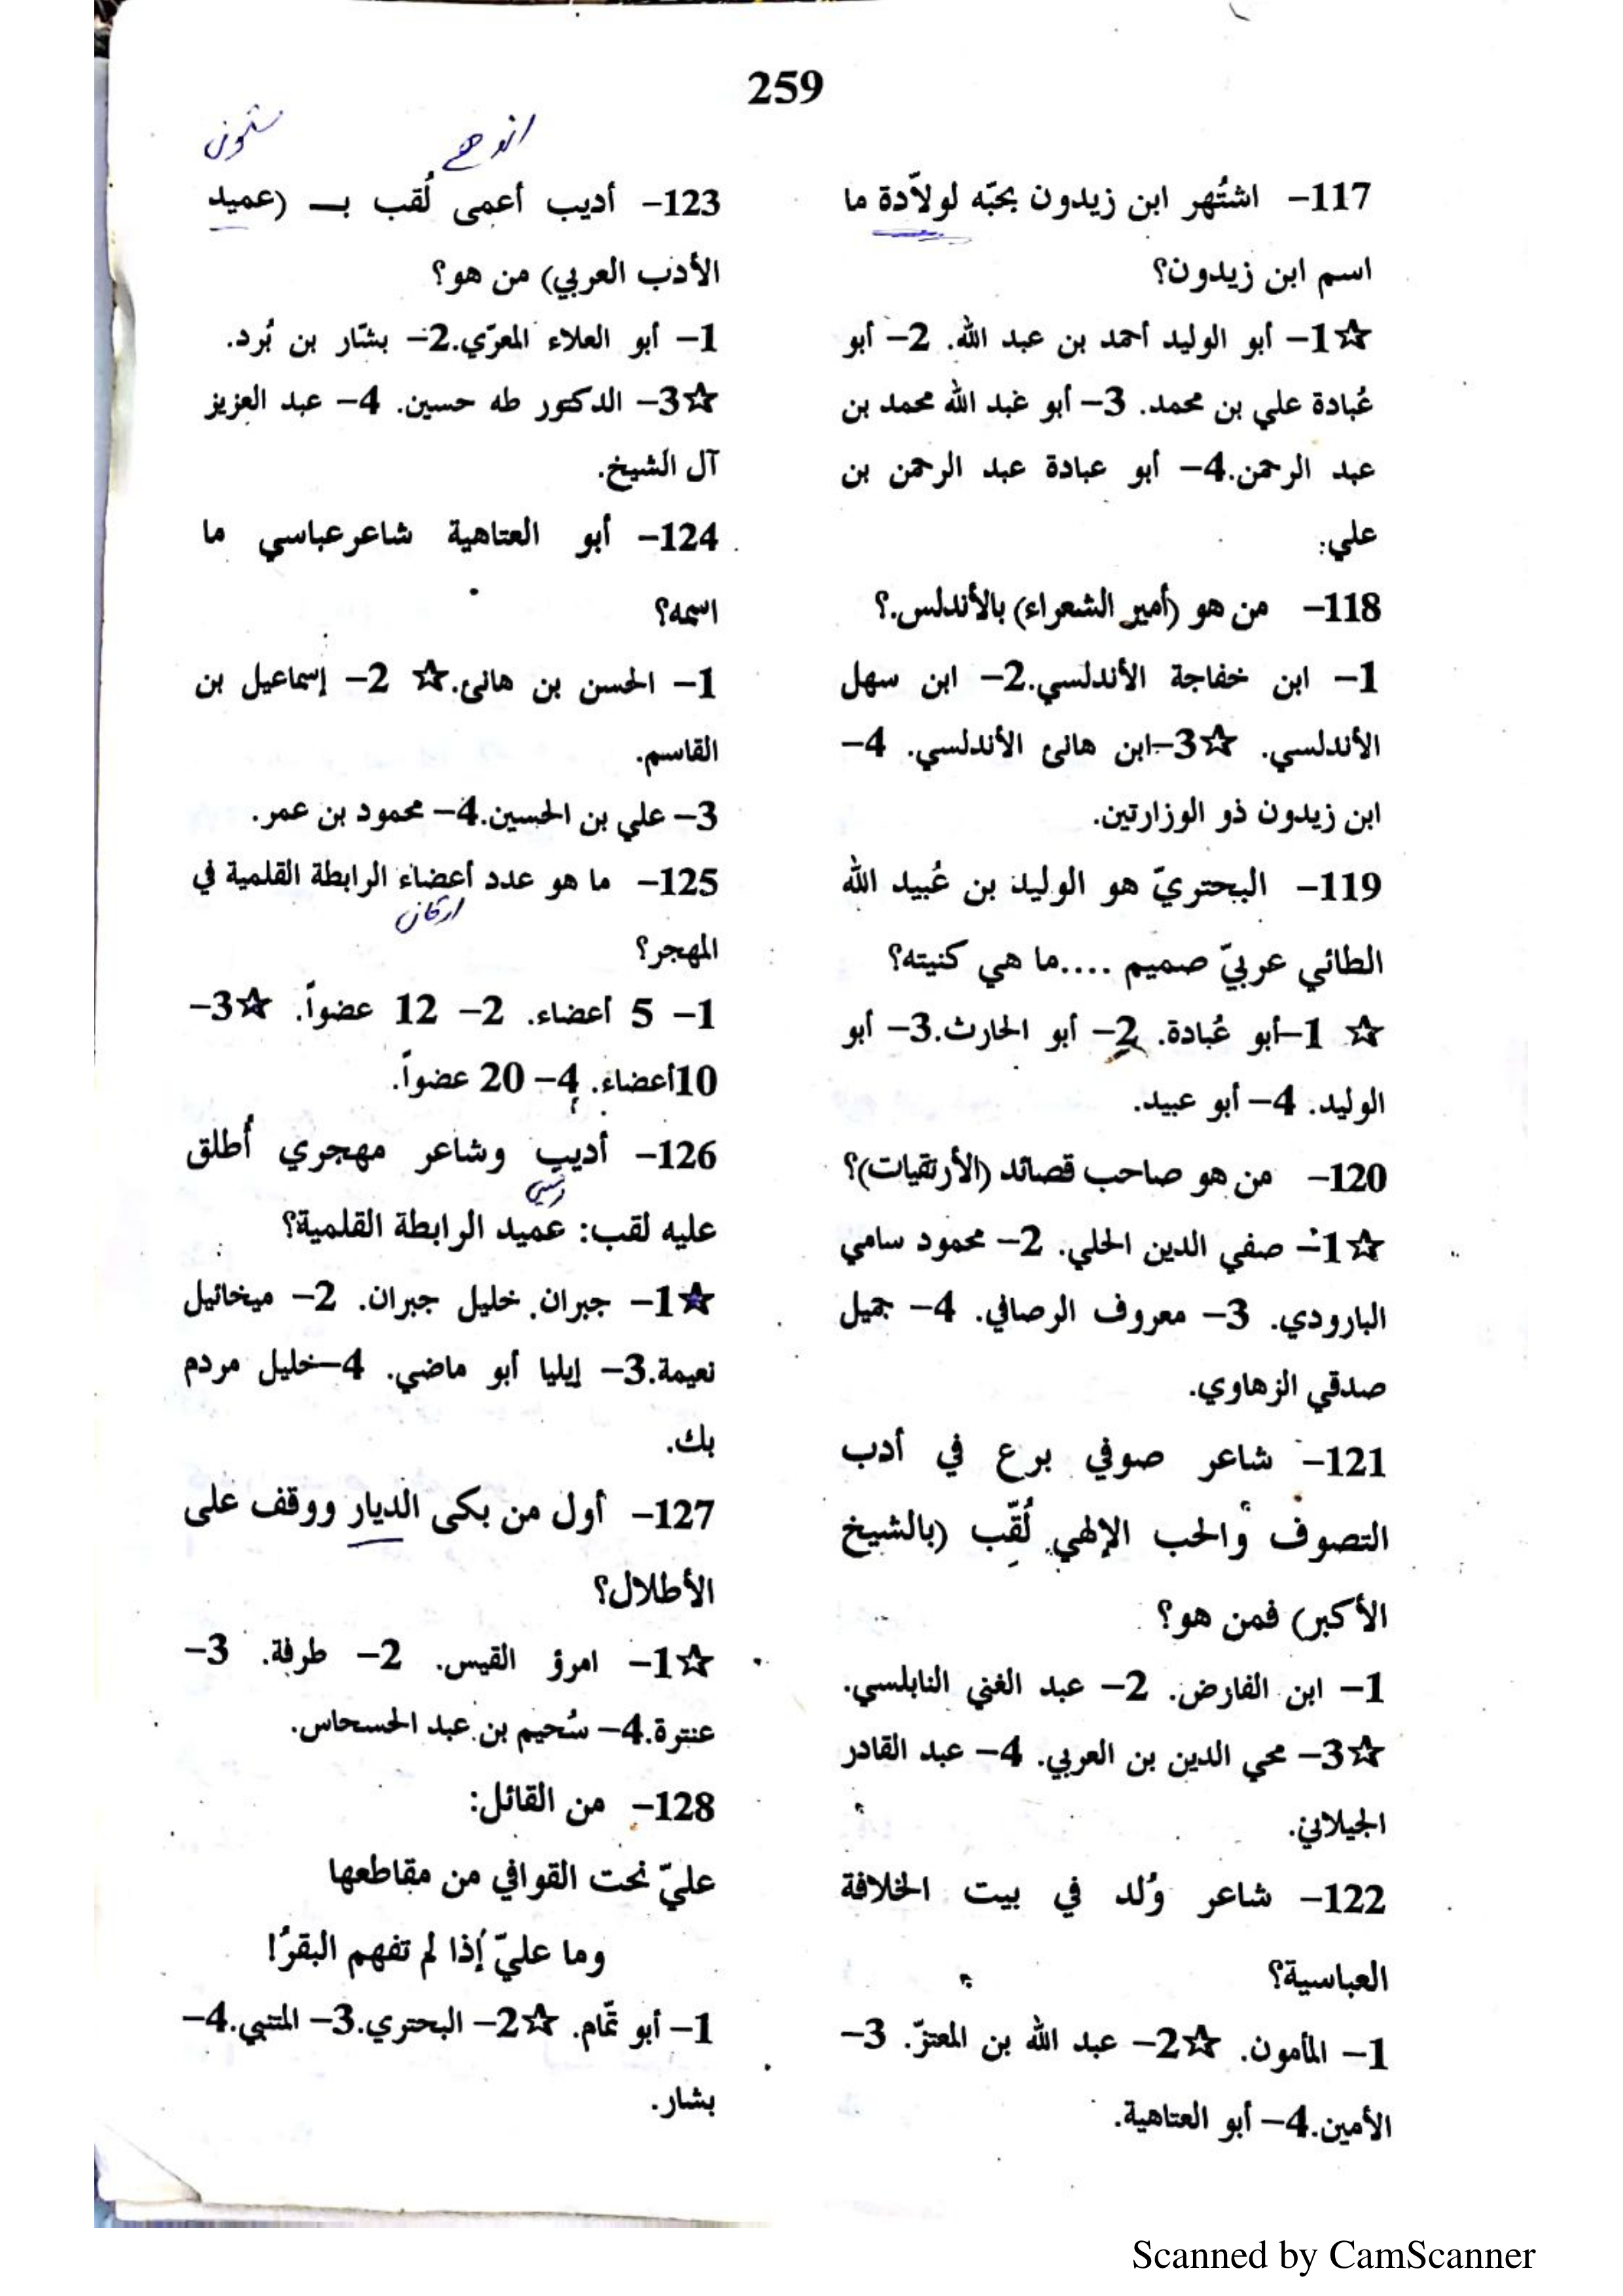 259
117- اشتُهر ابن زيدون بحبّه لولاّدة ما
اسم ابن زيدون؟
☆1- أبو الوليد أحمد بن عبد الله. 2- أبو
عُبادة علي بن محمد. 3- أبو عبد الله محمد بن
عبد الرحمن.4- أبو عبادة عبد الرحمن بن
علي:
118- من هو (أمير الشعراء) بالأندلس.؟
1- ابن خفاجة الأندلسي.2- ابن سهل
الأندلسي. ☆3-ابن هانئ الأندلسي. 4-
ابن زيدون ذو الوزارتين.
119- البحتريّ هو الوليد بن عُبيد الله
الطائي عربيّ صميم ....ما هي كنيته؟
☆ 1-أبو عُبادة. 2- أبو الحارث.3- أبو
الوليد. 4- أبو عبيد.
120- من هو صاحب قصائد (الأرتقيات)؟
☆1- صفي الدين الحلي. 2- محمود سامي
البارودي. 3- معروف الرصافي. 4- جميل
صدقي الزهاوي.
121- شاعر صوفي برع في أدب
التصوف والحب الإلهي لُقّب (بالشيخ
الأكبر) فمن هو؟
1- ابن الفارض. 2- عبد الغني النابلسي.
☆3- محي الدين بن العربي. 4- عبد القادر
الجيلاني.
122- شاعر وُلد في بيت الخلافة
العباسية؟
1- المأمون. ☆2- عبد الله بن المعتزّ. 3-
الأمين.4- أبو العتاهية.
ستون
123- أديب أعمى لُقب بـ (عميد
الأدب العربي) من هو؟
1- أبو العلاء المعرّي.2- بشّار بن بُرد.
☆3- الدكتور طه حسين. 4- عبد العزيز
آل الشيخ.
124- أبو العتاهية شاعرعباسي ما
اسمه؟
1- الحسن بن هانئ.☆ 2- إسماعيل بن
القاسم.
3- علي بن الحسين.4- محمود بن عمر.
125- ما هو عدد أعضاء الرابطة القلمية في
اركان
المهجر؟
1- 5 أعضاء. 2- 12 عضواً. ☆3-
10أعضاء. 4- 20 عضواً.
126- أديب وشاعر مهجري أُطلق
عليه لقب: عميد الرابطة القلمية؟
☆1- جبران خليل جبران. 2- ميخائيل
نعيمة.3- إيليا أبو ماضي. 4-خليل مردم
بك.
127- أول من بكى الديار ووقف على
الأطلال؟
☆1- امرؤ القيس. 2- طرفة. 3-
عنترة.4- سُحيم بن عبد الحسحاس.
128- من القائل:
عليّ نحت القوافي من مقاطعها
وما عليّ إذا لم تفهم البقرُ!
1- أبو تمّام. ☆2- البحتري.3- المتنبي.4-
بشار.
Scanned by CamScanner